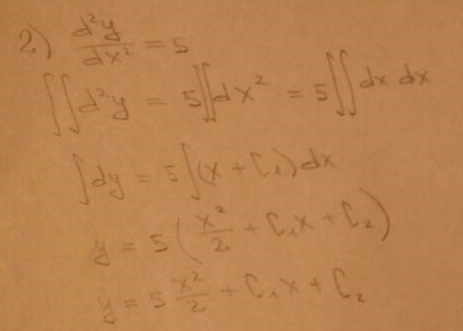 2) d²y/dx² = 5
∫∫d²y = 5∫∫dx² = 5∫∫dx dx
∫dy = 5∫(x + C₁)dx
y = 5(x²/2 + C₁x + C₂)
y = 5 x²/2 + C₁x + C₂